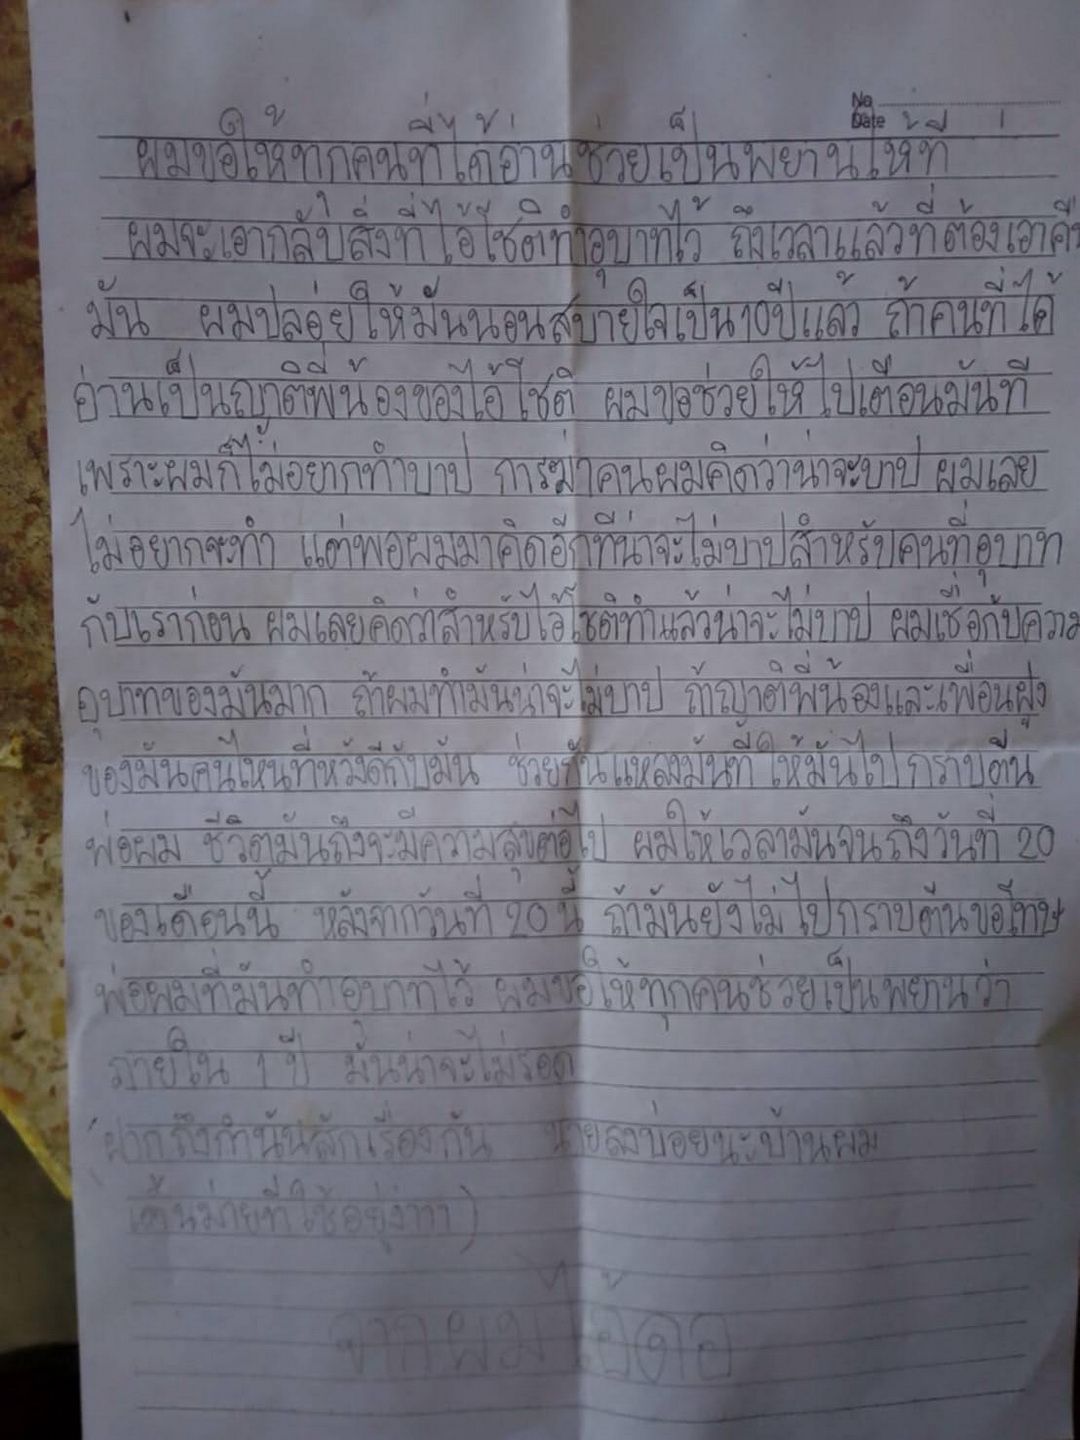 No
Date
ผมขอให้ทุกคนที่ได้อ่านช่วยเป็นพยานให้ที่
ผมจะเอากลับสิ่งที่ไอ้โชติทำอุบาทไว้ ถึงเวลาแล้วที่ต้องเอาคืน
มัน ผมปล่อยให้มันนอนสบายใจเป็น10ปีแล้ว ถ้าคนที่ได้
อ่านเป็นญาติพี่น้องของไอ้โชติ ผมขอช่วยให้ไปเตือนมันที
เพราะผมก็ไม่อยากทำบาป การฆ่าคนผมคิดว่าน่าจะบาป ผมเลย
ไม่อยากจะทำ แต่พอผมมาคิดอีกทีน่าจะไม่บาปสำหรับคนที่อุบาท
กับเราก่อน ผมเลยคิดว่าสำหรับไอ้โชติทำแล้วน่าจะไม่บาป ผมเชื่อกับความ
อุบาทของมันมาก ถ้าผมทำมันน่าจะไม่บาป ถ้าญาติพี่น้องและเพื่อนฝูง
ของมันคนไหนที่หวังดีกับมัน ช่วย มันที ให้มันไปกราบตีน
พ่อผม ชีวิตมันถึงจะมีความสุขต่อไป ผมให้เวลามันจนถึงวันที่ 20
ของเดือนนี้ หลังจากวันที่ 20 นี้ ถ้ามันยังไม่ไปกราบตีนขอโทษ
พ่อผมที่มันทำอุบาทไว้ ผมขอให้ทุกคนช่วยเป็นพยานว่า
ภายใน 1 ปี มันน่าจะไม่รอด
ฝากถึงกำนันสักเรื่องกัน บ่อยนะบ้านผม
ที่ใช้อยู่
จากผมไอ้ดอ